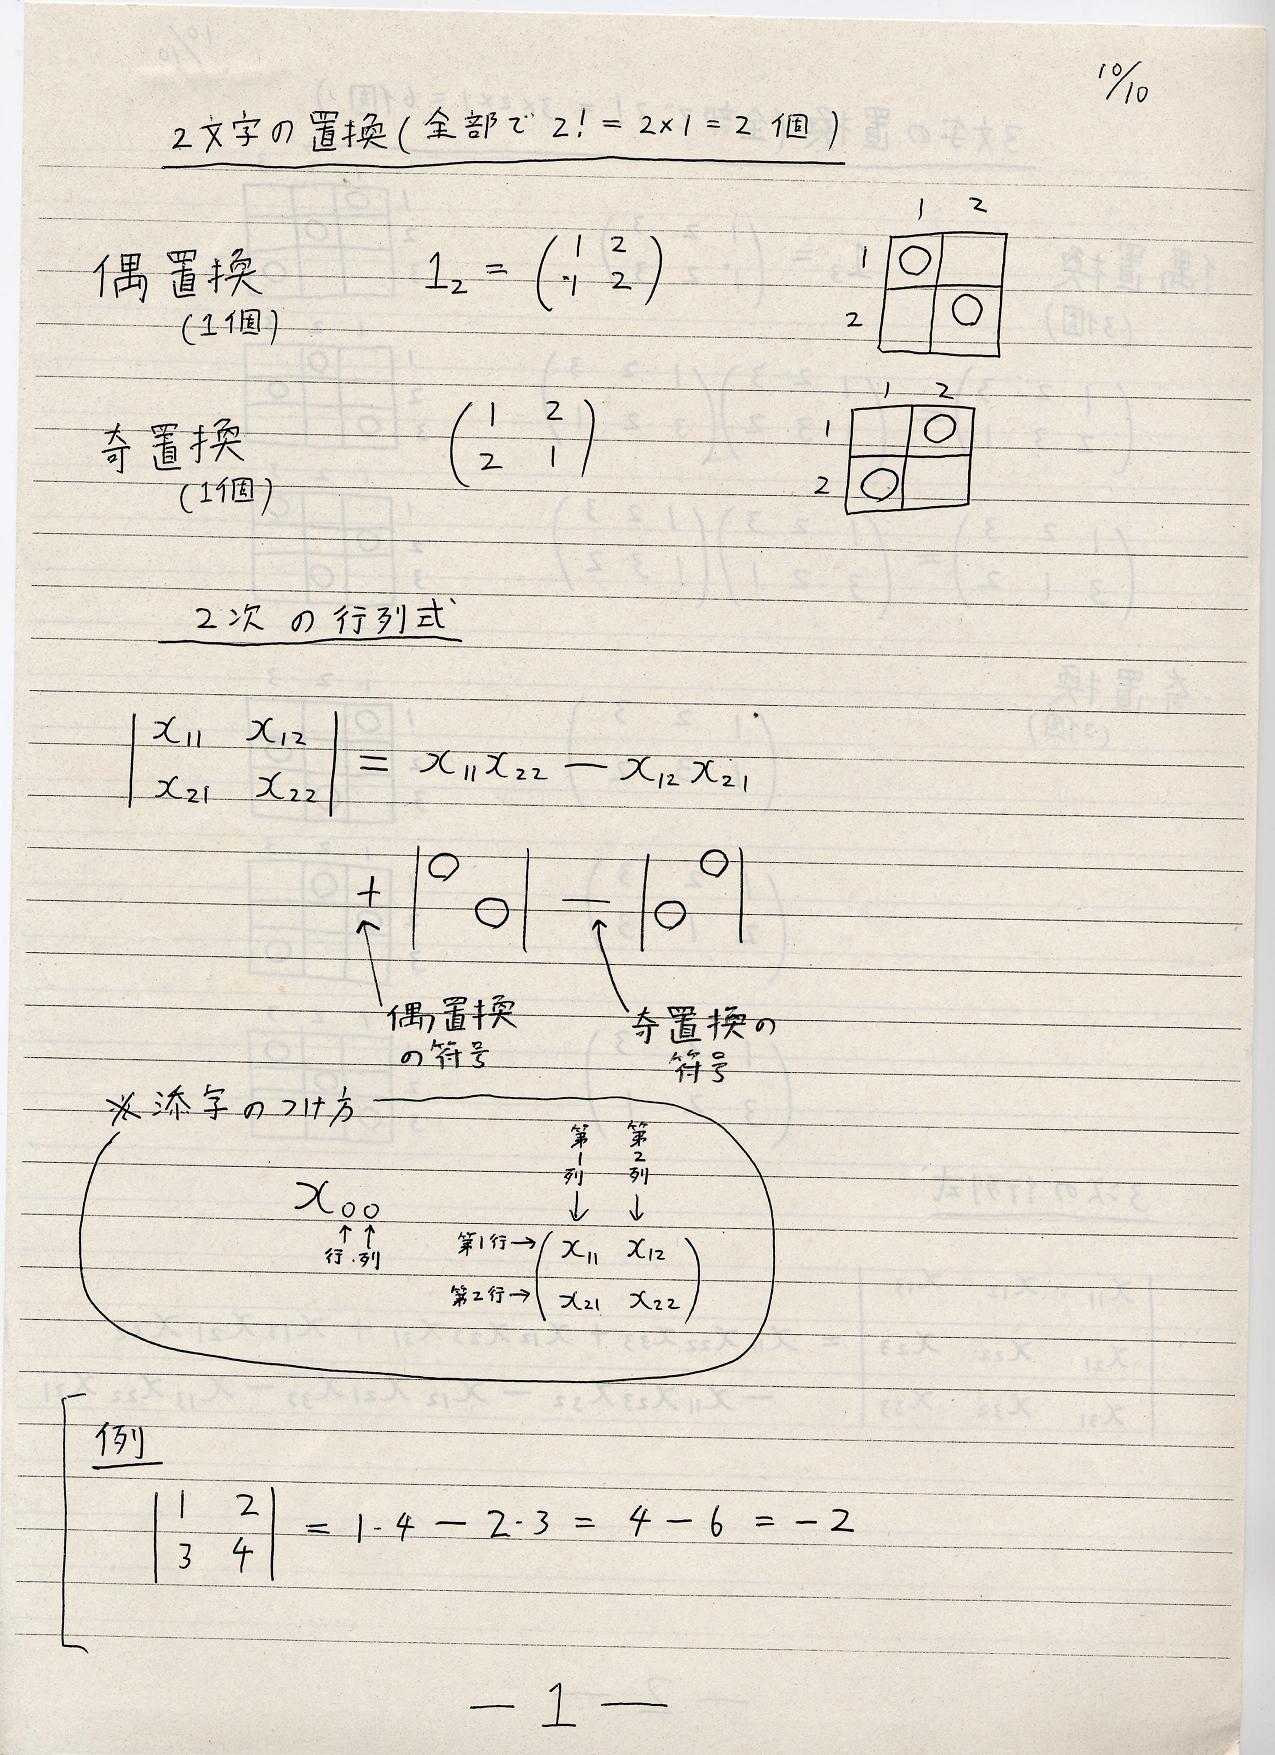 10/10
2文字の置換(全部で2! = 2×1 = 2個)
1 2
偶置換 1₂ = (1 2 1
(1個) 1 2) 2
1 2
奇置換 (1 2 1
(1個) 2 1) 2
2次の行列式
|x₁₁ x₁₂
x₂₁ x₂₂| = x₁₁x₂₂ − x₁₂x₂₁
+ |○ ○| − |○ ○|
偶置換 奇置換の
の符号 符号
※添字のつけ方
第1列 第2列
↓ ↓
x○○
↑ ↑
行 列
第1行→(x₁₁ x₁₂
第2行→ x₂₁ x₂₂)
例
|1 2
3 4| = 1·4 − 2·3 = 4 − 6 = −2
— 1 —